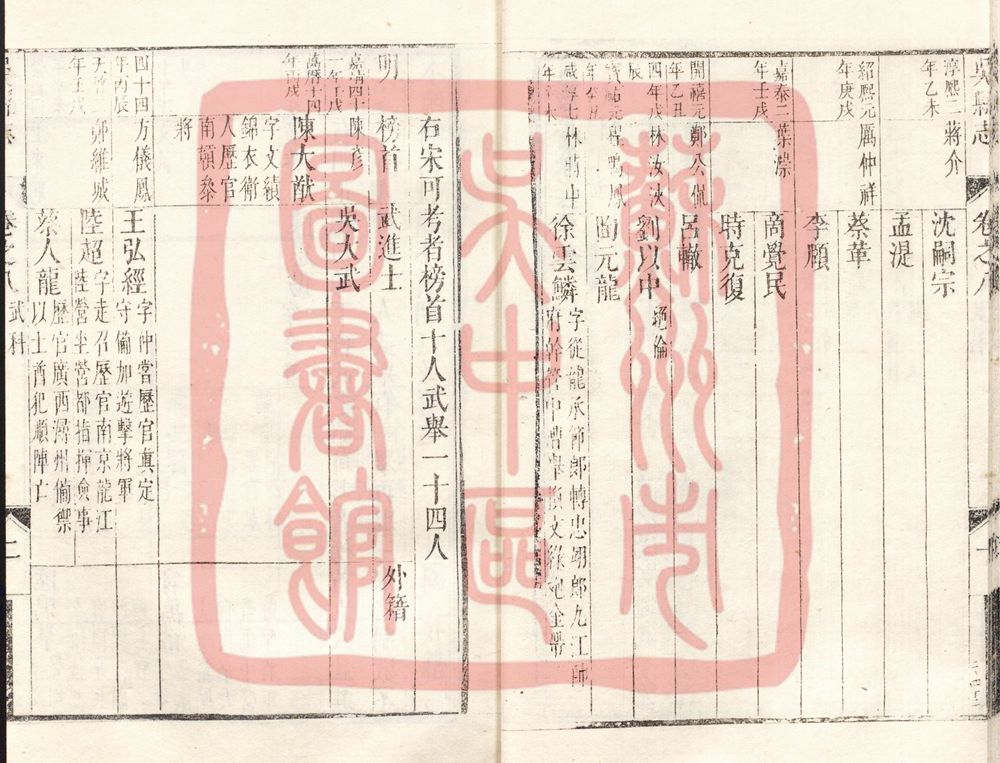 吳縣志
卷之八
淳熙二年乙未
蔣介
沈嗣宗
孟湜
紹熙元年庚戌
厲仲祥
蔡革
李願
嘉泰二年壬戌
葉淙
商覺民
時克復
開禧元年乙丑
鄭公侃
呂轍
四年戊辰
林汝浹
劉以中
絕倫
寶祐元年
程鳴鳳
陶元龍
咸淳七年
林時中
徐雲鱗
字從龍承節郎轉忠翊郎九江帥
府幹管中
右宋可考者榜首十人武舉一十四人
明
榜首
武進士
外籍
嘉靖四十一年壬戌
陳彥
吳大武
萬曆十四年丙戌
陳大猷
字文績
錦衣衛
人歷官
南贛參
將
四十四年丙辰
方儀鳳
王弘經
字仲嘗歷官真定
守備加遊擊將軍
天啟二年壬戌
鄭維城
陸超
字走召歷官南京龍江
陸營坐營都指揮僉事
蔡人龍
歷官廣西潯州備禦
以土酋犯順陣亡
卷之八
武科
蘇州市
吳中區
圖書館